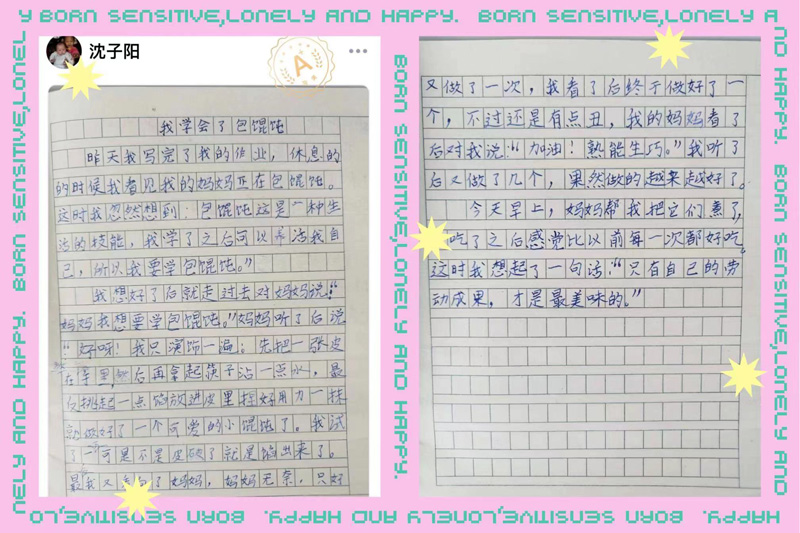 Y BORN SENSITIVE,LONELY AND HAPPY. BORN SENSITIVE,LONELY A
ND HAPPY. BORN SENSITIVE,LONELY AND
HAPPY. BORN SENSITIVE,LONELY AND HAPPY. BORN SENSITIVE,LO
NELY AND HAPPY. BORN SENSITIVE,LONEL
沈子阳
A
我学会了包馄饨
昨天我写完了我的作业，休息的
的时候我看见我的妈妈正在包馄饨。
这时我忽然想到：包馄饨这是一种生
活的技能，我学了之后可以养活我自
己，所以我要学包馄饨。”
我想好了后就走过去对妈妈说：“
妈妈我想要学包馄饨。”妈妈听了后说
“好呀！我只演饰一遍：先把一张皮
在手里，然后再拿起筷子沾一点水，最
后挑起一点馅放进皮里捏好用力一抹
就做好了一个可爱的小馄饨了。我试
了一 可是不是皮破了就是馅出来了。
最 我又 了妈妈，妈妈无奈，只好
BORN SENSITIVE,LONELY AND HAPPY.
又做了一次，我看了后终于做好了一
个，不过还是有点丑，我的妈妈看了
后对我说：“加油！熟能生巧。”我听了
后又做了几个，果然做的越来越好了。
今天早上，妈妈帮我把它们煮了，
吃了之后感觉比以前每一次都好吃
这时我想起了一句话：“只有自己的劳
动成果，才是最美味的。”